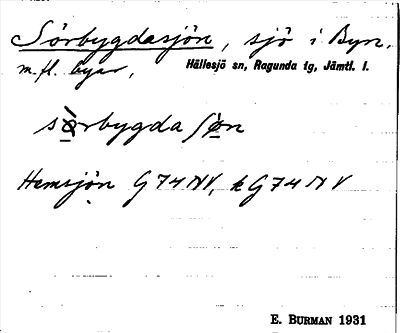 Sörbygdasjön, sjö i Byn.
m.fl. byar, Hällesjö sn, Ragunda tg, Jämtl. l.
sørbygda ʃøn
Hemsjön G 74 NV, k G 74 N V
E. BURMAN 1931